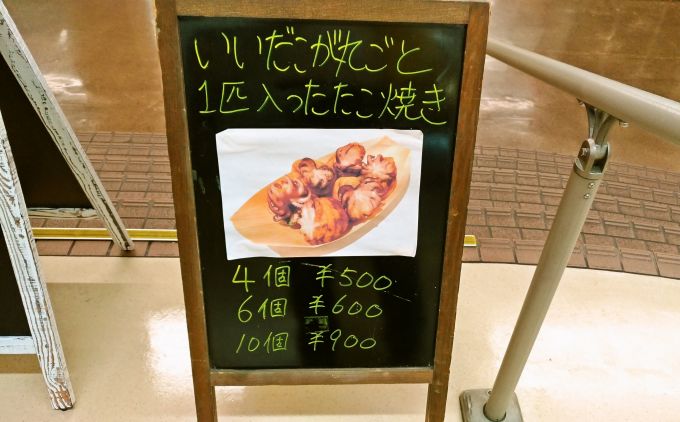 いいだこが丸ごと
1匹入ったたこ焼き
4個 ¥500
6個 ¥600
10個 ¥900